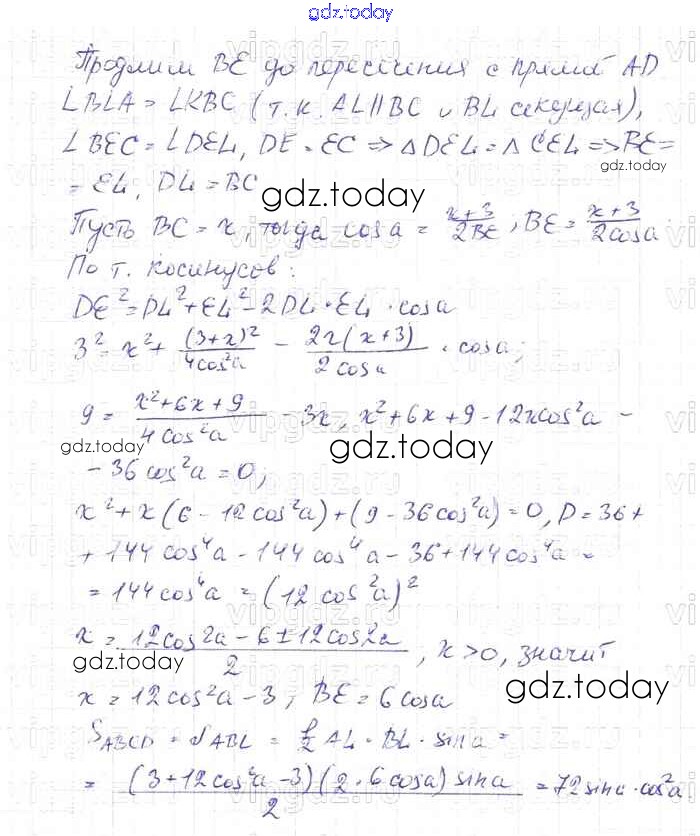 gdz.today
Продлим BE до пересечения с прямой AD
∠BLA = ∠KBC (т.к. AL || BC и BL секущая),
∠BEC = ∠DEL, DE = EC => △DEL = △CEL => BE =
= EL; DL = BC
gdz.today
Пусть BC = x, тогда cos a = (x+3)/(2BE); BE = (x+3)/(2cos a)
По т. косинусов:
DE² = DL² + EL² - 2DL · EL · cos a
3² = x² + (3+x)²/(4cos²a) - 2x(x+3)/(2cos a) · cos a;
9 = (x²+6x+9)/(4cos²a) - 3x, x²+6x+9-12xcos²a -
gdz.today
gdz.today
- 36cos²a = 0;
x² + x(6 - 12cos²a) + (9 - 36cos²a) = 0, D = 36 +
+ 144cos⁴a - 144cos⁴a - 36 + 144cos⁴a =
= 144cos⁴a = (12cos²a)²
x = (12cos2a - 6 ± 12cos2a)/2, x > 0, значит
gdz.today
gdz.today
x = 12cos²a - 3; BE = 6cos a
S ABCD = S ABL = 1/2 AL · BL · sin a =
= (3+12cos²a-3)(2·6cos a)sin a/2 = 72sin a · cos²a